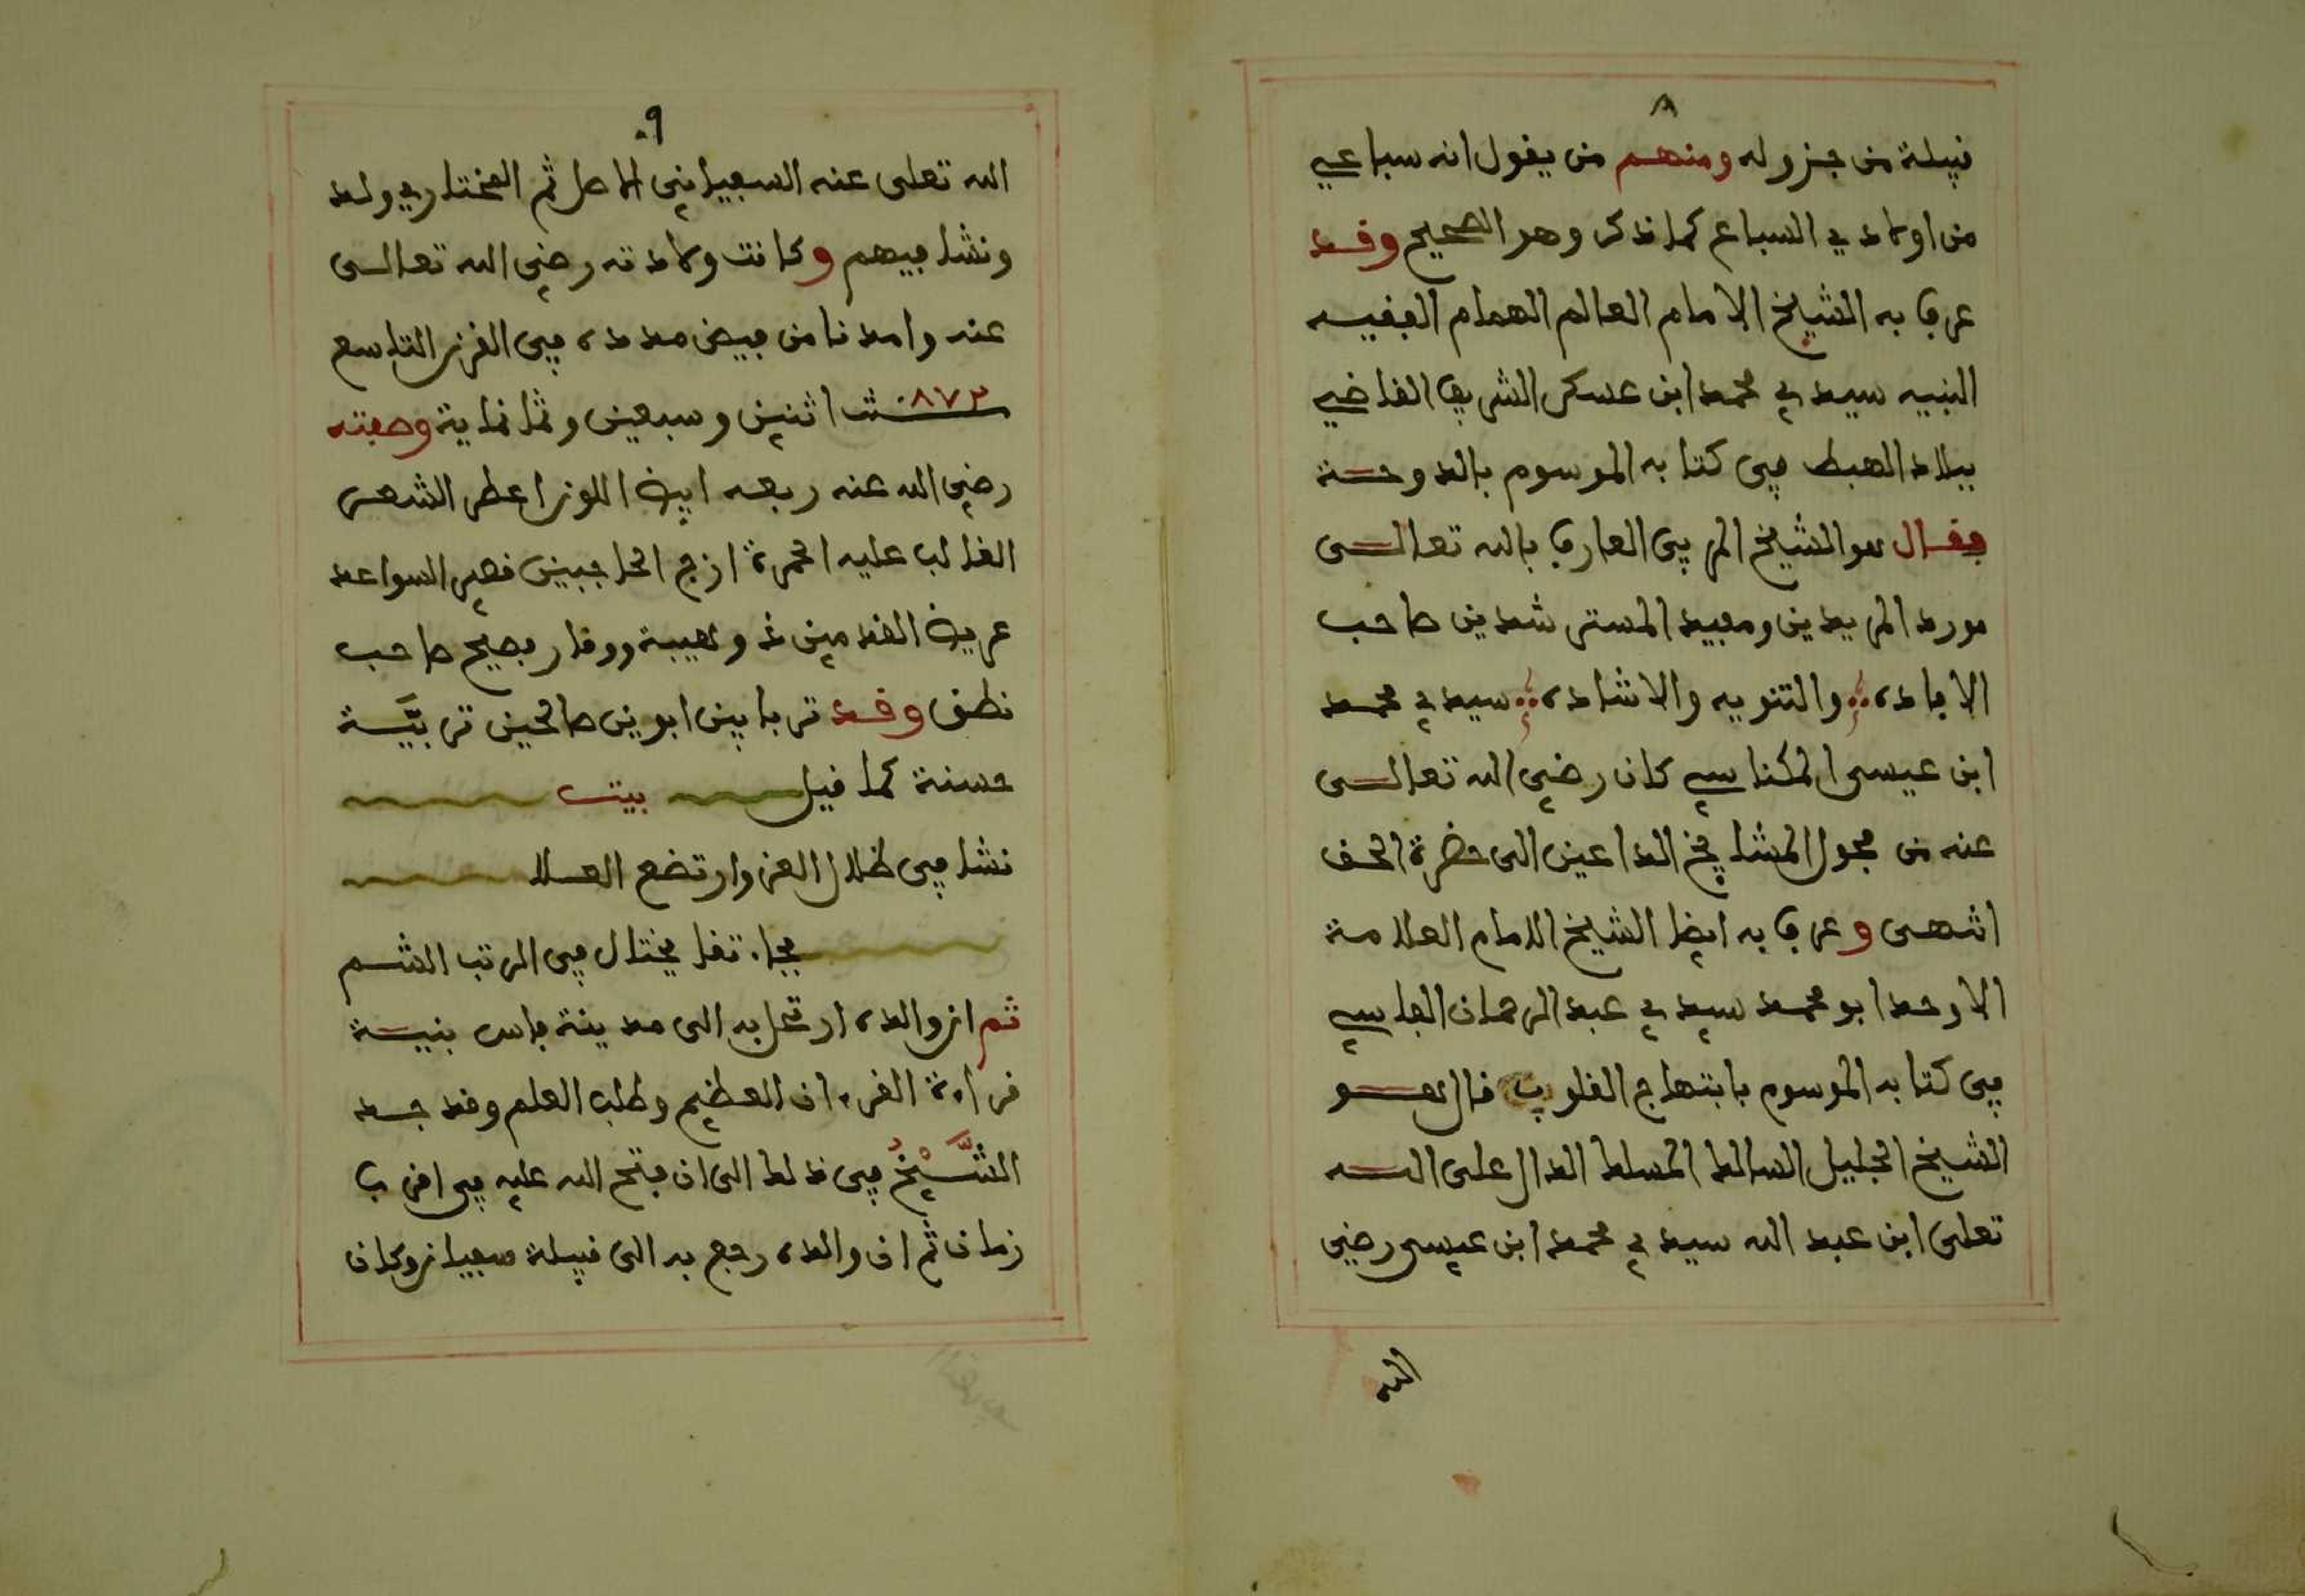 ٨
قبيلة من جزوله ومنهم من يقول انه سباعي
من اولاد بي السباع كما ذكر وهو الصحيح وقد
عرف به الشيخ الامام العالم الهمام الفقيه
النبيه سيدي محمد ابن عسكر الشريف القاضي
ببلاد الهبط في كتابه الموسوم بالدوحة
فقال هو الشيخ المربي العارف بالله تعالى
مورد المريدين ومفيد المسترشدين صاحب
الافاده والتنويه والاشاده سيدي محمد
ابن عيسى المكناسي كان رضي الله تعالى
عنه من فحول المشايخ الداعين الى حضرة الحق
انتهى وعرف به ايضا الشيخ الامام العلامة
الاوحد ابو محمد سيدي عبد الرحمان الفاسي
في كتابه الموسوم بابتهاج القلوب قال هو
الشيخ الجليل السالك المسلك الدال على الله
تعلى ابن عبد الله سيدي محمد ابن عيسى رضي
الله
٩
الله تعلى عنه السفياني الاصل ثم المختاري ولد
ونشا فيهم وكانت ولادته رضي الله تعالى
عنه وامدنا من فيض مدده في القرن التاسع
سنة ٨٧٢ اثنين وسبعين وثمانماية وصفته
رضي الله عنه ربعه ابيض اللون اعطر الشعر
الغالب عليه الحمرة ازج الحاجبين قصير السواعد
عريض القدمين ذو هيبة ووقار فصيح صاحب
نطق وقد تربا بين ابوين صالحين تربيَّة
حسنة كما قيل بيت
نشا في ظلال العز وارتضع العلا
فجاء تقا يختال في الرتب الشم
ثم ان والده ارتحل به الى مدينة فاس بنية
قراءة القرءان العظيم وطلب العلم وقد جد
الشَّيْخُ في ذلك الى ان فتح الله عليه في اقرب
زمان ثم ان والده رجع به الى قبيلة سفيان وكان